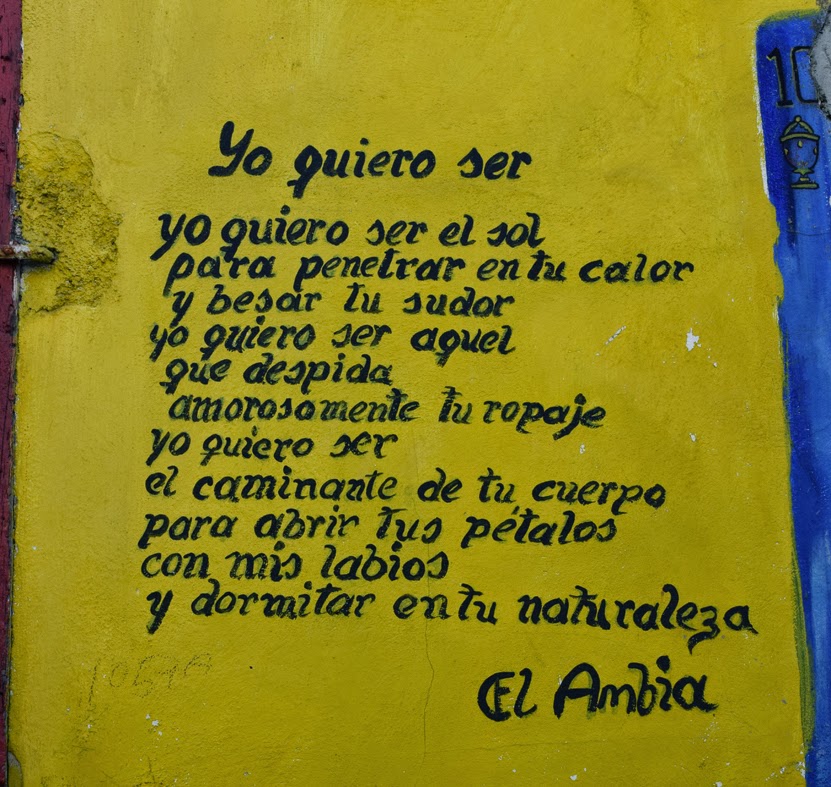 Yo quiero ser
yo quiero ser el sol
para penetrar en tu calor
y besar tu sudor
yo quiero ser aquel
que despida
amorosamente tu ropaje
yo quiero ser
el caminante de tu cuerpo
para abrir tus pétalos
con mis labios
y dormitar en tu naturaleza
El Ambia